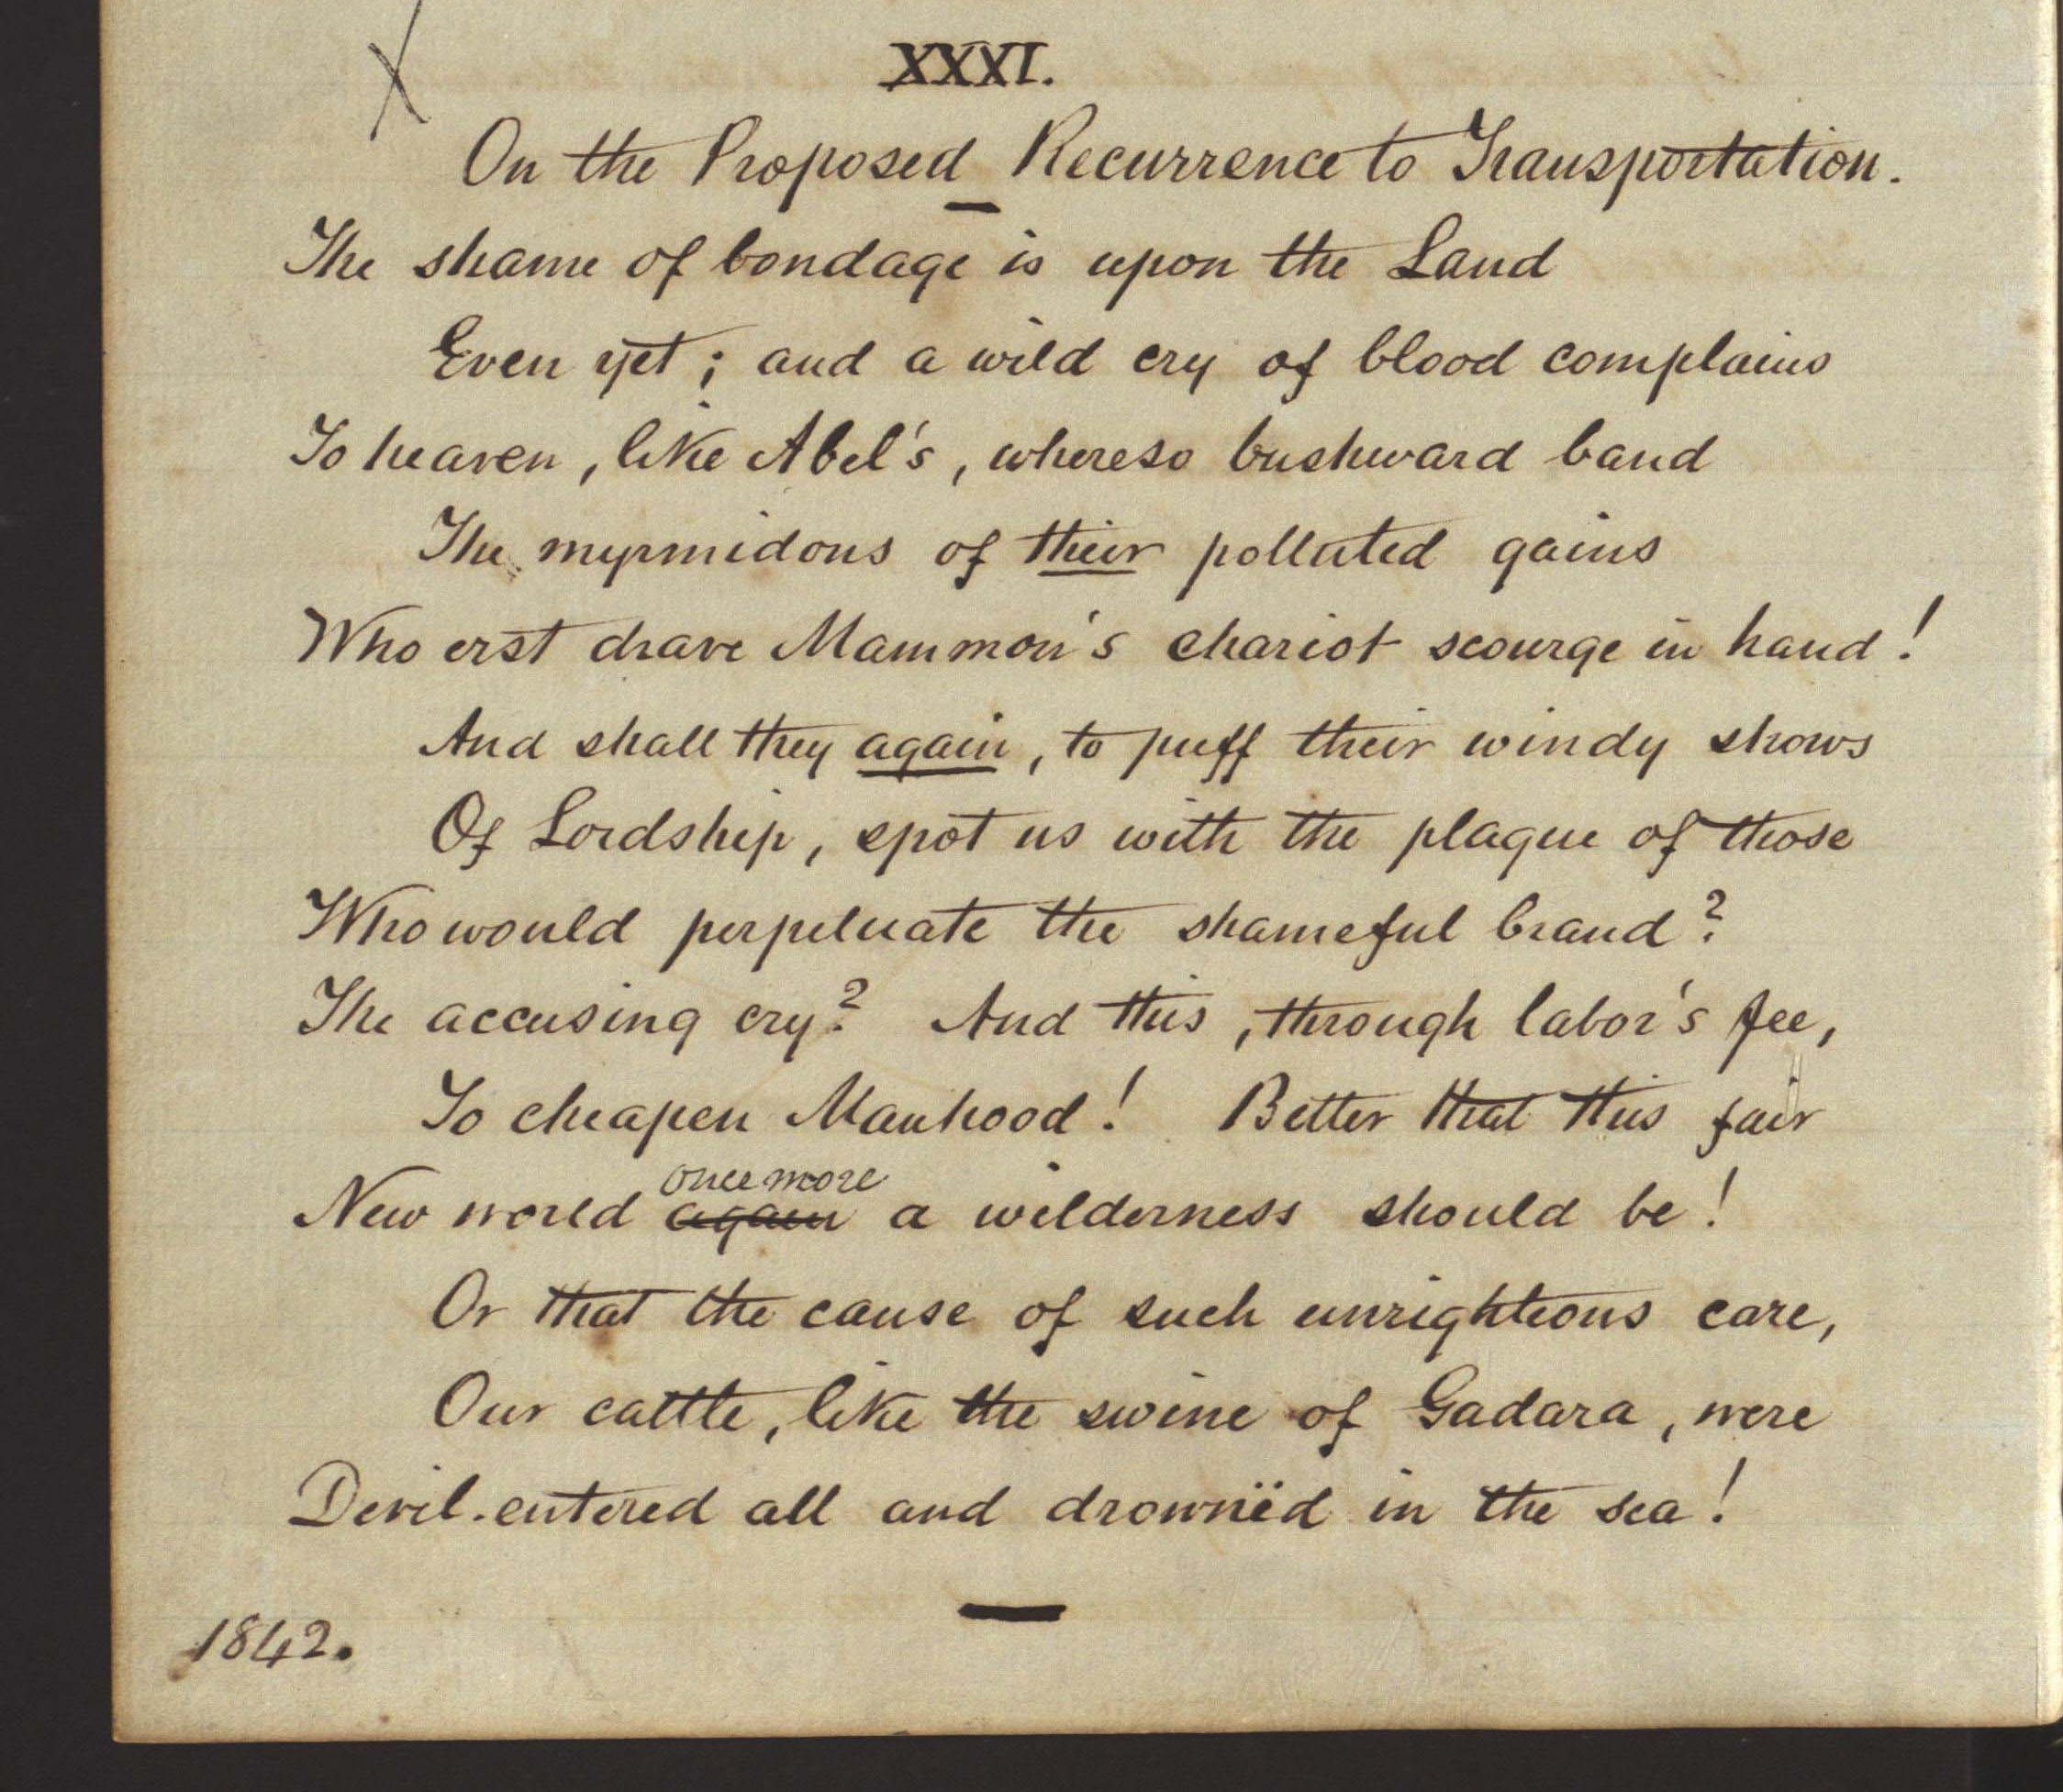 XXXI.
On the Proposed Recurrence to Transportation.
The shame of bondage is upon the Land
Even yet; and a wild cry of blood complains
To heaven, like Abel's, whereso bushward band
The myrmidons of their polluted gains
Who erst drave Mammon's chariot scourge in hand!
And shall they again, to puff their windy shows
Of Lordship, spot us with the plague of those
Who would perpetuate the shameful brand?
The accusing cry? And this, through labor's fee,
To cheapen Manhood! Better that this fair
once more
New world again a wilderness should be!
Or that the cause of such unrighteous care,
Our cattle, like the swine of Gadara, were
Devil-entered all and drownëd in the sea!
1842.